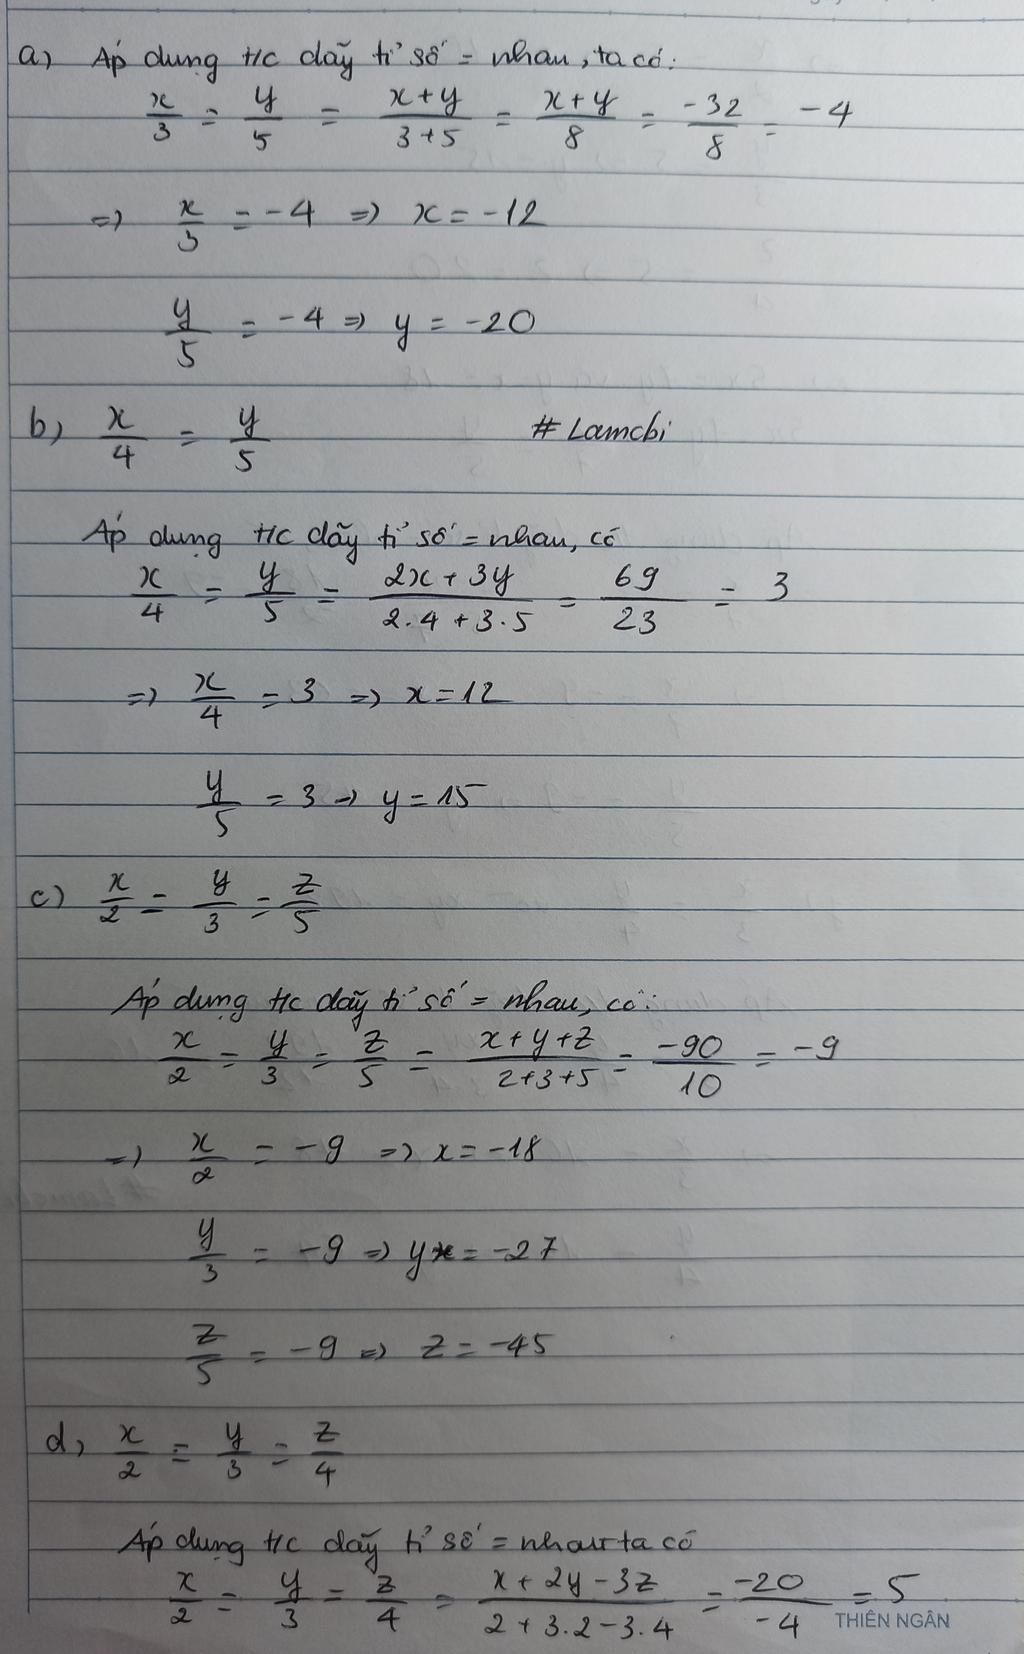 a) Áp dụng t/c dãy tỉ số = nhau, ta có:
x/3 = y/5 = (x+y)/(3+5) = (x+y)/8 = -32/8 = -4
=> x/3 = -4 => x = -12
y/5 = -4 => y = -20
b) x/4 = y/5 # Lamchi
Áp dụng t/c dãy tỉ số = nhau, có
x/4 = y/5 = (2x+3y)/(2.4+3.5) = 69/23 = 3
=> x/4 = 3 => x = 12
y/5 = 3 => y = 15
c) x/2 = y/3 = z/5
Áp dụng t/c dãy tỉ số = nhau, có:
x/2 = y/3 = z/5 = (x+y+z)/(2+3+5) = -90/10 = -9
=> x/2 = -9 => x = -18
y/3 = -9 => y = -27
z/5 = -9 => z = -45
d) x/2 = y/3 = z/4
Áp dụng t/c dãy tỉ số = nhau ta có
x/2 = y/3 = z/4 = (x+2y-3z)/(2+3.2-3.4) = -20/-4 = 5
THIÊN NGÂN